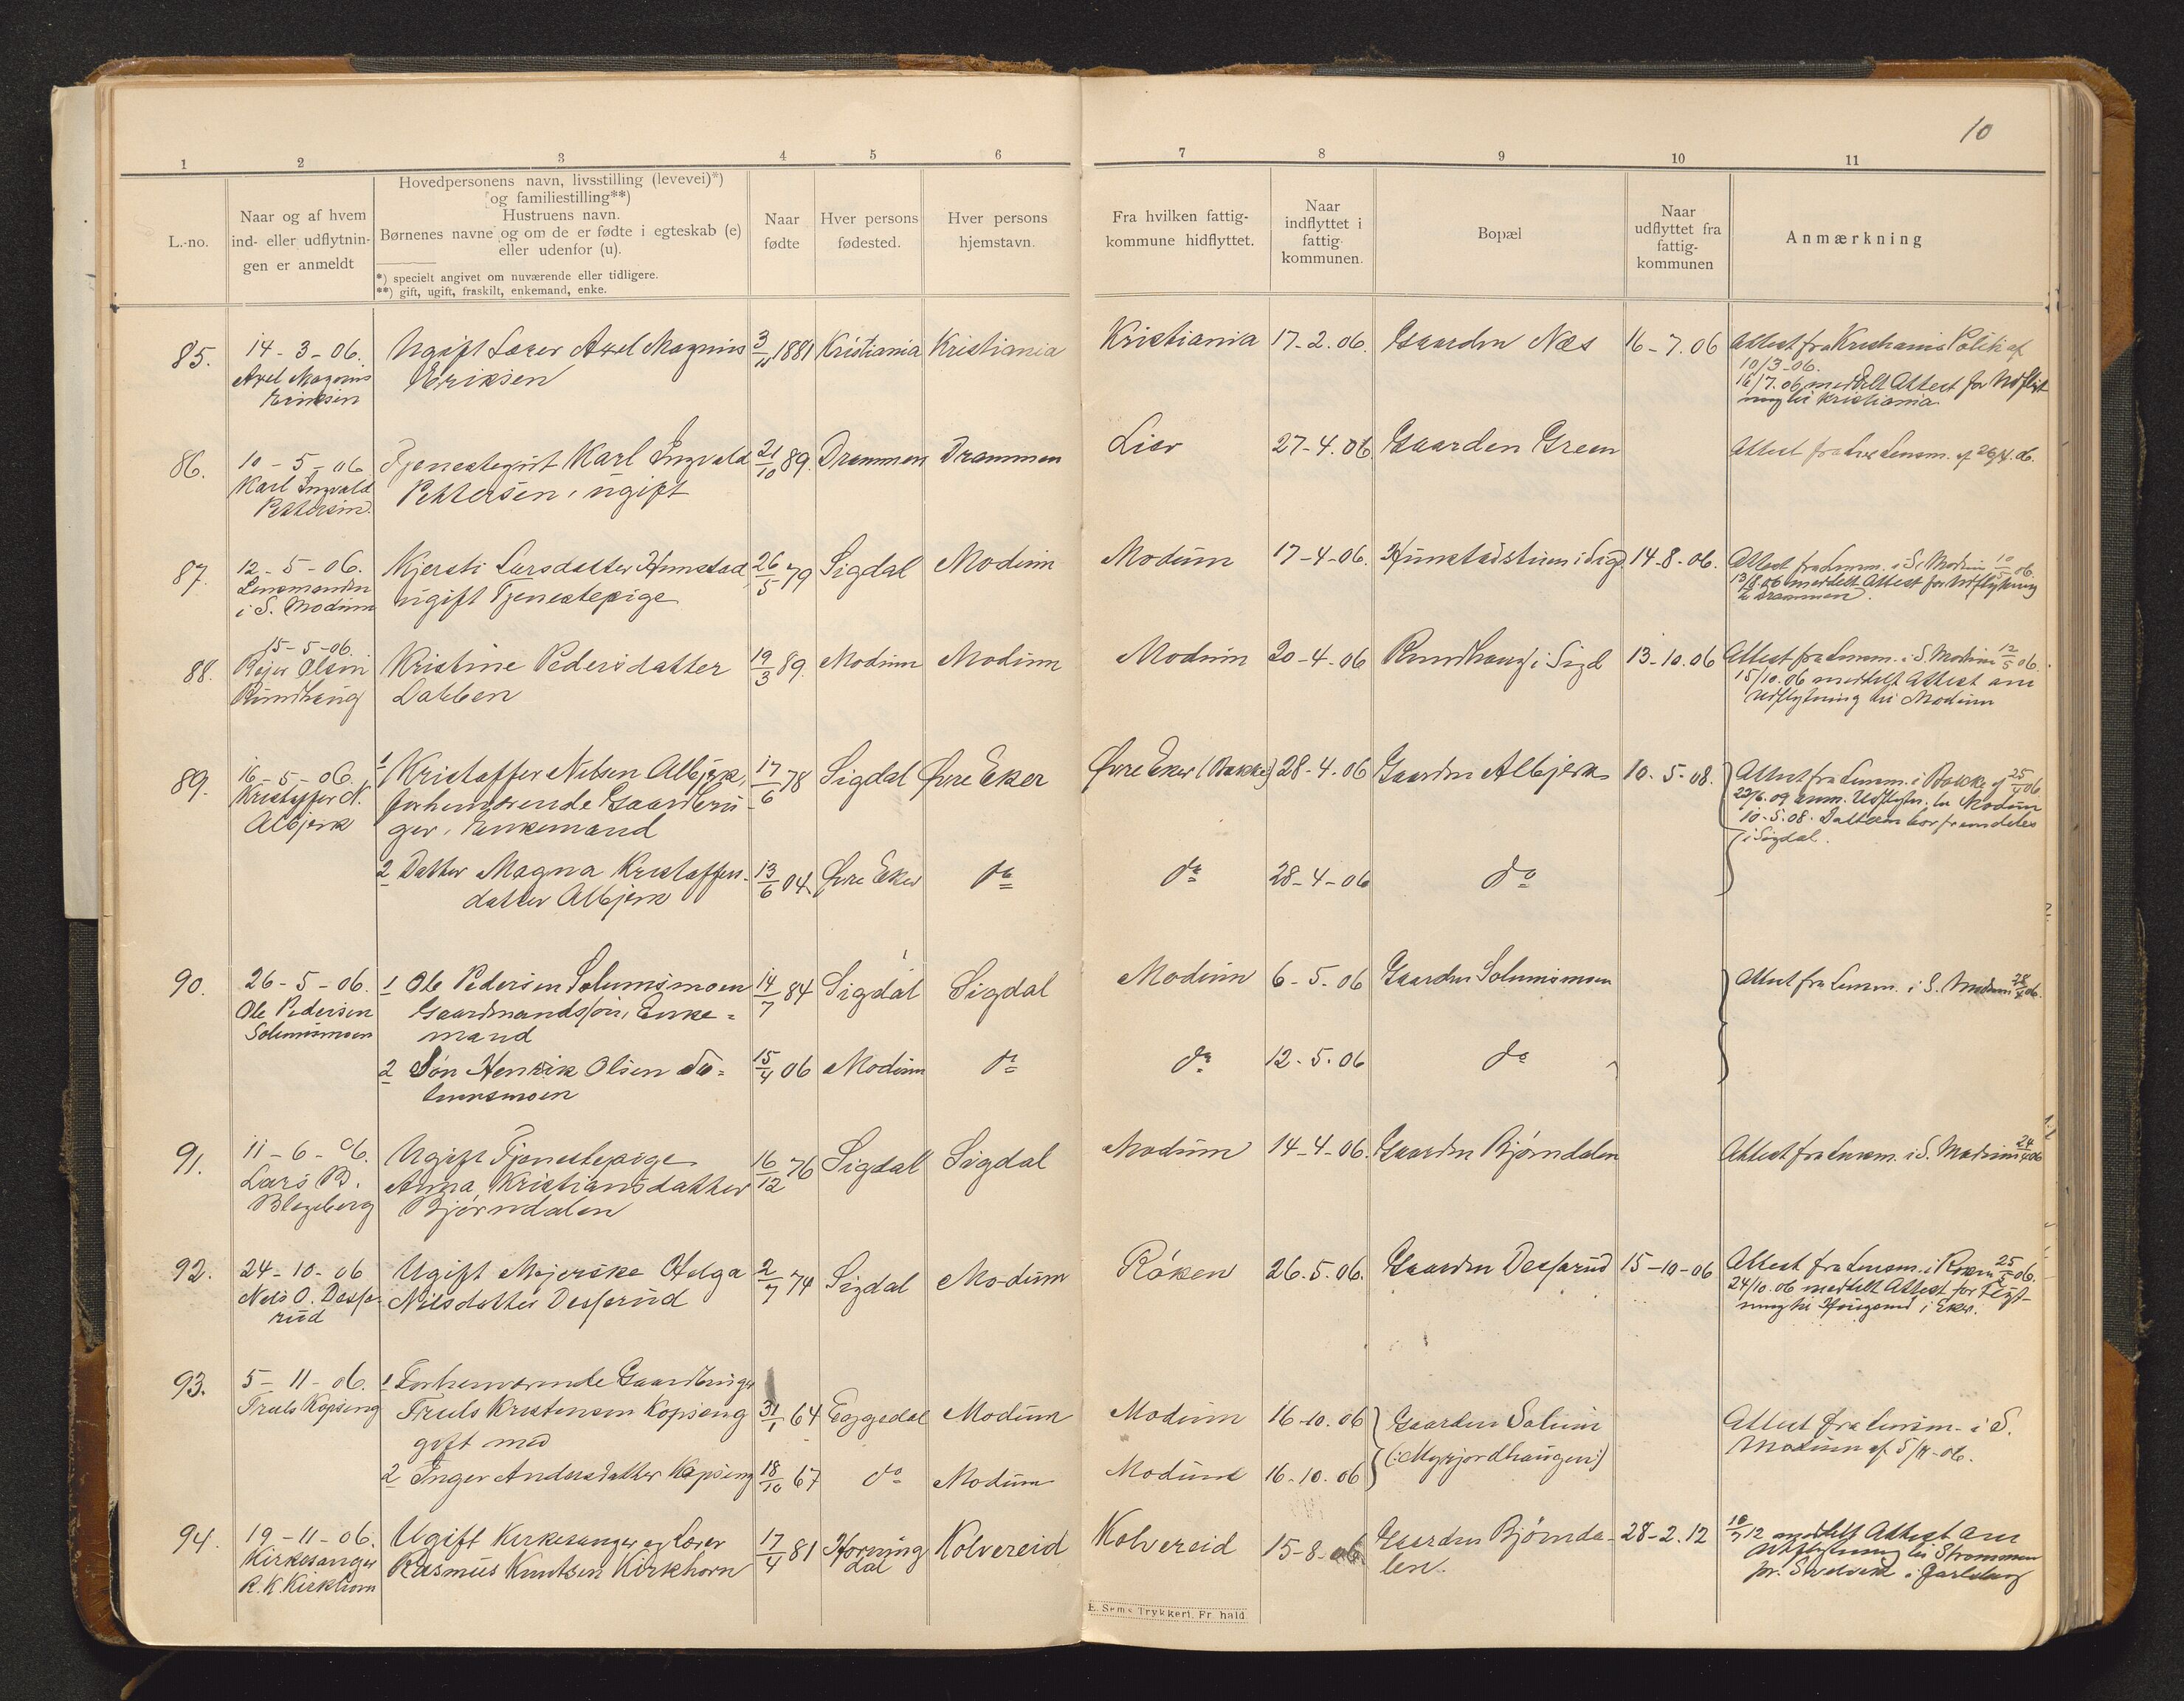 10
1 2 3 4 5 6 7 8 9 10 11
L.-no.
Naar og af hvem
ind- eller udflytnin-
gen er anmeldt
Hovedpersonens navn, livsstilling (levevei)*)
og familiestilling**)
Hustruens navn.
Børnenes navne og om de er fødte i egteskab (e)
eller udenfor (u).
*) specielt angivet om nuværende eller tidligere.
**) gift, ugift, fraskilt, enkemand, enke.
Naar
fødte
Hver persons
fødested.
Hver persons
hjemstavn.
Fra hvilken fattig-
kommune hidflyttet.
Naar
indflyttet i
fattig-
kommunen.
Bopæl
Naar
udflyttet fra
fattig-
kommunen
Anmærkning
85.
14-3-06.
Axel Magnus
Eriksen
Ugift Læser Axel Magnus
Eriksen
1881
Kristiania
Kristiania
Kristiania
17-2.06.
Gaarden Næs
16-7.06
Attest fra Kristiania Politi af
10/3-06.
16/7.06 meddelt Attest for Udflyt-
ning til Kristiania.
86.
10-5-06
Karl Ingvald
Pettersen.
Tjenestegut Karl Ingvald
Pettersen, ugift
21/10 89.
Drammen
Drammen
Lier
27-4.06
Gaarden Green
Attest fra Lier Lensm. af 26/4.06.
87.
12-5-06.
Lensmanden
i S. Modum
Kjersti Larsdatter Hunstad
ugift Tjenestepige
26/5 79
Sigdal
Modum
Modum
17-4-06.
Hunstadstuen i Sigd.
14-8-06.
Attest fra Lensm. i S. Modum 10/5 06.
13/8.06 meddelt Attest for Udflytning
til Drammen.
88.
15-5-06.
Olsen
Rundhaug
Kristine Pedersdatter
Dabben
19/3 89.
Modum
Modum
Modum
20-4-06
Rundhaug i Sigd
13-10.06
Attest fra Lensm. i S. Modum 12/5 06.
15/10.06 meddelt Attest om
Udflytning til Modum
89.
16-5-06.
Kristoffer N.
Albjerk
1 Kristoffer Nilsen Albjerk,
forhenværende Gaardbru-
ger, Enkemand
17/6 78
Sigdal
Øvre Eker
Øvre Eker (Bakke)
28-4.06
Gaarden Albjerk
10.5-08.
Attest fra Lensm. i Bakke af 25/4 06.
22/6.09 anm. Udflytn. til Modum
10-5.08. Datteren bor fremdeles
i Sigdal.
2 Datter Magna Kristoffers-
datter Albjerk
13/6 04
Øvre Eker
do
do
28-4-06
do
90.
26-5-06.
Ole Pedersen
Solumsmoen
1 Ole Pedersen Solumsmoen
Gaardmandssøn, Enke-
mand
14/7 84
Sigdal
Sigdal
Modum
6-5.06
Gaarden Solumsmoen
Attest fra Lensm. i S. Modum 28/4 06.
2 Søn Henrik Olsen So-
lumsmoen
15/4 06
Modum
do
do
12-5-06
do
91.
11-6-06.
Lars B.
Blegeberg
Ugift Tjenestepige
Anna Kristiansdatter
Bjørndalen
16/12 76
Sigdal
Sigdal
Modum
14-4-06.
Gaarden Bjørndalen
Attest fra Lensm. i S. Modum 24/4 06
92.
24-10-06
Nels O. Desse-
rud
Ugift Mejerske Helga
Nilsdatter Desserud
2/7 74
Sigdal
Modum
Røken
26.5.06.
Gaarden Desserud
15-10-06
Attest fra Lensm. i Røken 25/5 06.
24/10.06 meddelt Attest for Flyt-
ning til Hougsund i Eker.
93.
5-11-06.
Truls Kopseng
1 Forhenværende Gaardbruger
Truls Kristensen Kopseng
gift med
31/1 64
Eggedal
Modum
Modum
16-10.06
Gaarden Solum
(:Myrjordhaugen:)
Attest fra Lensm. i S.
Modum af 5/11-06.
2 Inger Andersdatter Kopseng
18/10 67
do
Modum
Modum
16-10.06
94.
19-11-06.
Kirkesanger
R. K. Kirkhorn
Ugift Kirkesanger og Lærer
Rasmus Knutsen Kirkhorn
17/4 81
Horning
dal
Kolvereid
Kolvereid
15-8-06.
Gaarden Bjørnda-
len.
28-2.12
meddelt Attest om
Udflytning til Strømmen
pr. Svelvik i Jarlsberg
E. Sems Trykkeri, Fr.hald.